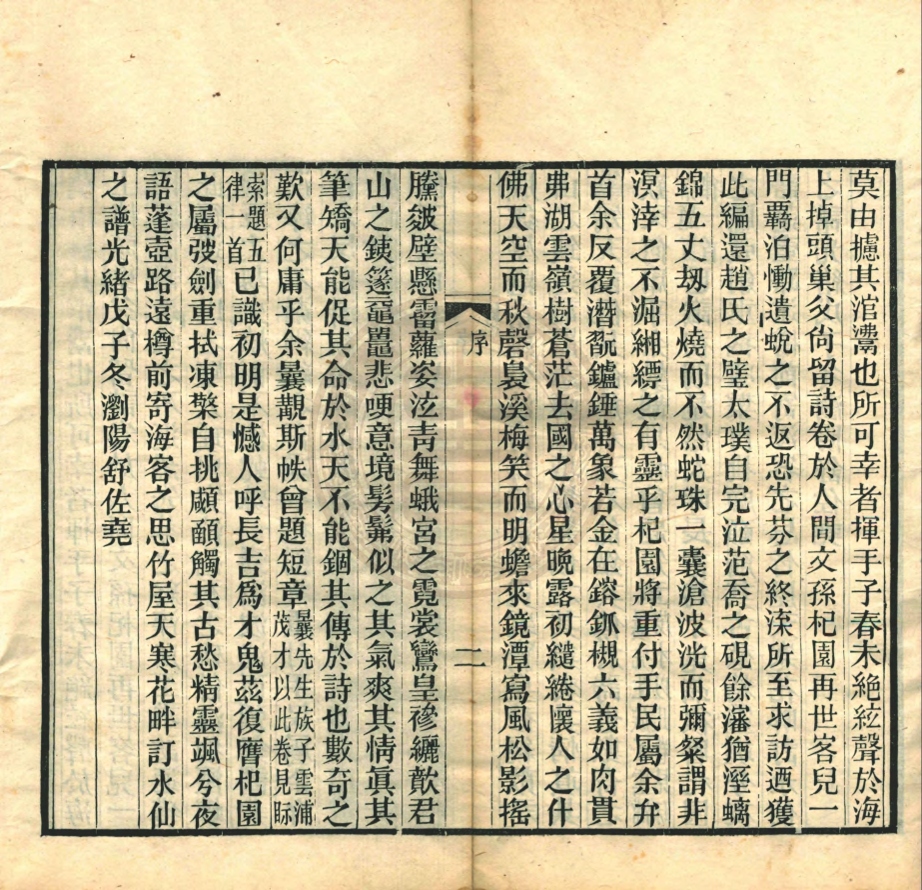 莫由攄其涫灊也所可幸者揮手子春未絕絃聲於海
上掉頭巢父尙留詩卷於人間文孫杞園再世客兒一
門覊泊慟遺蛻之不返恐先芬之終湥所至求訪迺獲
此編還趙氏之璧太璞自完泣范喬之硯餘瀋猶溼螭
錦五丈刼火燒而不然蛇珠一囊滄波洸而彌粲謂非
溟涬之不漘緗縹之有靈乎杞園將重付手民屬余弁
首余反覆潛翫鑪錘萬象若金在鎔鈲槻六義如肉貫
弗湖雲嶺樹蒼茫去國之心星晚露初繾綣懷人之什
佛天空而秋磬裊溪梅笑而明蟾來鏡潭寫風松影搖
序
二
騰皴壁懸霤蘿姿泫靑舞蛾宮之霓裳鸞皇䅟纚歕君
山之鐵籧鼉鼂悲哽意境髣髴似之其氣爽其情眞其
筆矯天能促其命於水天不能錮其傳於詩也數奇之
歎又何庸乎余曩覯斯帙曾題短章曩先生族子雲浦
茂才以此卷見眎
索題五
律一首已識初明是憾人呼長吉爲才鬼茲復譍杞園
之屬弢劍重拭凍檠自挑顱顄觸其古愁精靈颯兮夜
語蓬壺路遠樽前寄海客之思竹屋天寒花畔訂水仙
之譜光緒戊子冬瀏陽舒佐堯